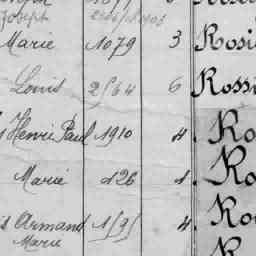 Joseph
Marie 1079 3 Rosi
Louis 2564 6 Rossi
Henri Paul 1910 4. Ro
Marie 126 1. Ro
Armand 1595 4. Ro
Marie